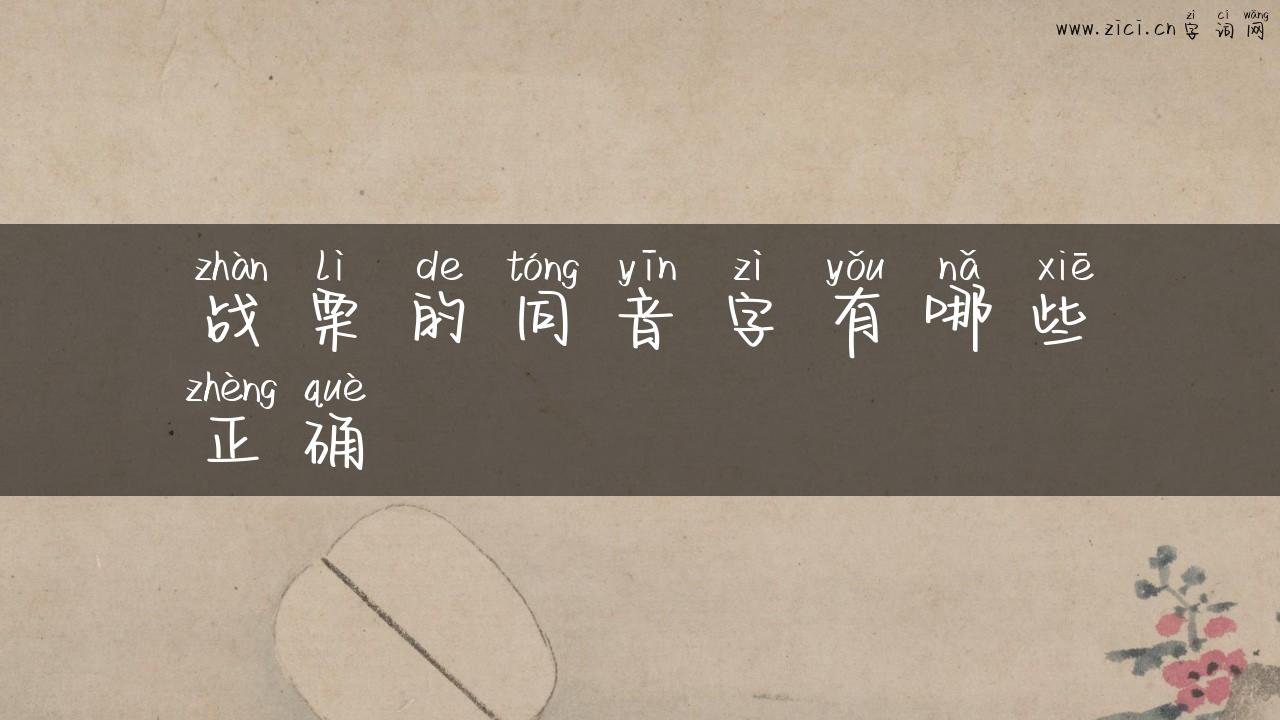 zì cí wǎng
www.zici.cn 字词网
zhàn lì de tóng yīn zì yǒu nǎ xiē
战栗的同音字有哪些
zhèng què
正确